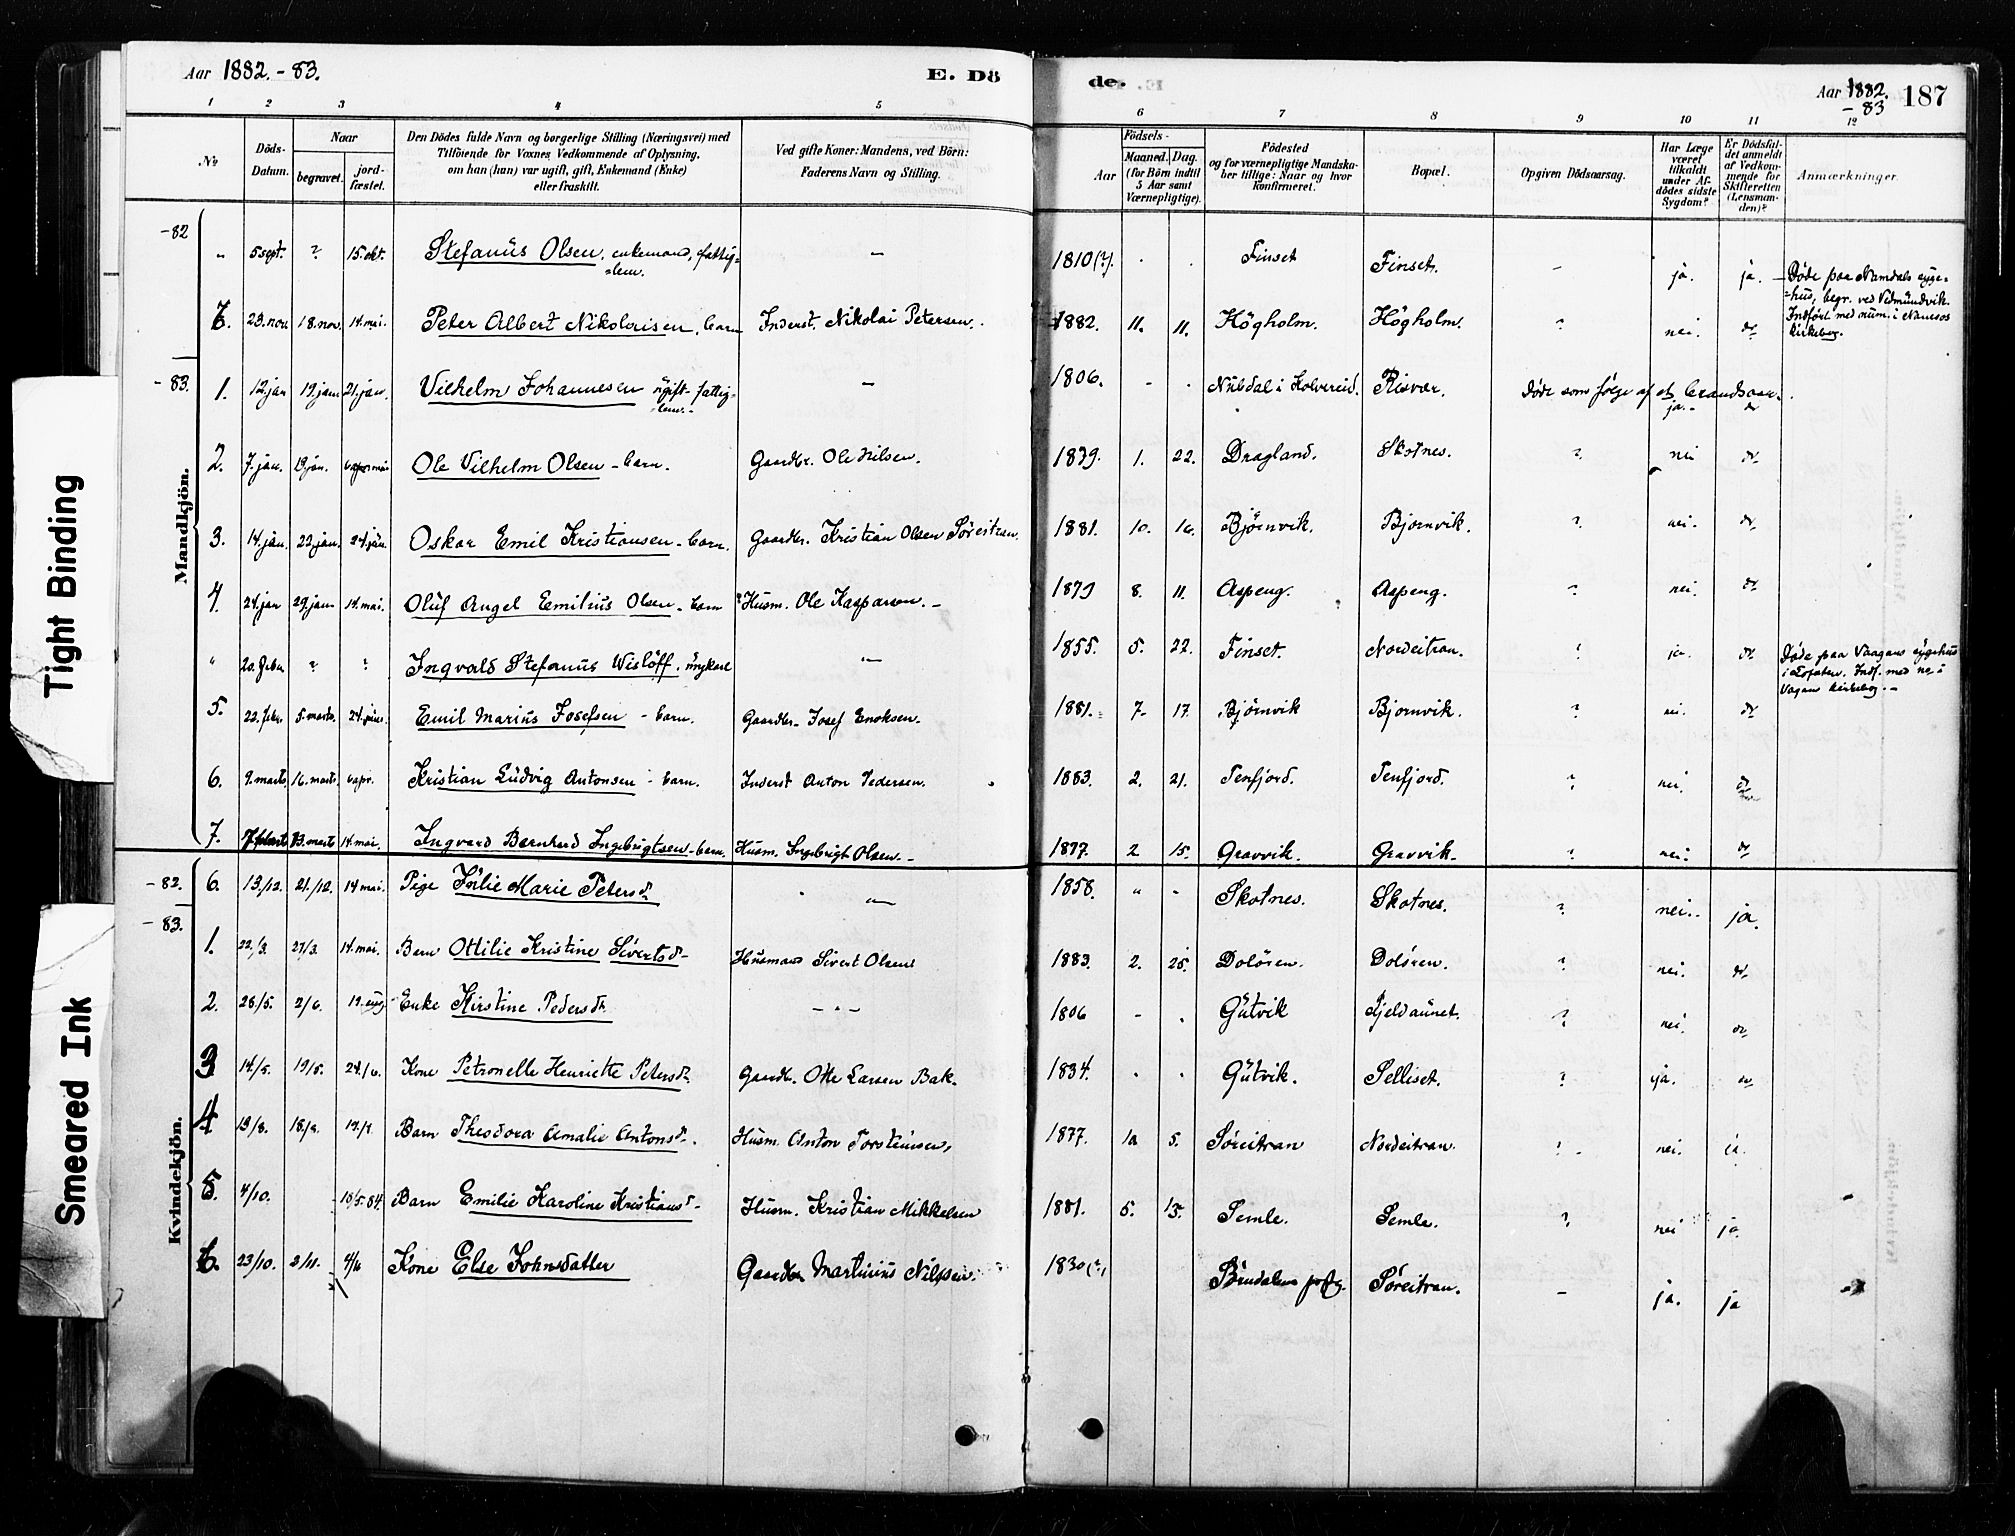 Aar 1882.-83.
E. Dö
de.
Aar 1882.
-83
187
1 2 3 4 5 6 7 8 9 10 11 12
No
Döds-
Datum.
Naar
begravet.
jord-
fæstet.
Den Dödes fulde Navn og borgerlige Stilling (Næringsvei) med
Tilföiende for Voxnes Vedkommende af Oplysning,
om han (hun) var ugift, gift, Enkemand (Enke)
eller fraskilt.
Ved gifte Koner: Mandens, ved Börn:
Faderens Navn og Stilling.
Födsels-
Aar
Maaned.
Dag.
(for Börn indtil
5 Aar samt
Værnepligtige).
Födested
og for værnepligtige Mandska-
ber tillige: Naar og hvor
konfirmeret.
Bopæl.
Opgiven Dödsaarsag.
Har Læge
været
tilkaldt
under Af-
dödes sidste
Sygdom?
Er Dödsfal-
det anmeldt
af Vedkom-
mende for
Skifteretten
(Lensman-
den)?
Anmærkninger.
Mandkjön.
-82
" 5 sept. ? 15. okt. Stefanus Olsen, enkemand, fattig-
-lem. — 1810(?). . . Finset Finset. - ja. ja. Døde paa Namdals syge-
=hus, begr. ved Vedmundvik.
Indført med num. i Namsos
kirkebog.
7. 23. nov. 18. nov. 14. mai. Peter Albert Nikolaisen, barn Inderst. Nikolai Petersen. 1882. 11. 11. Høgholm. Høgholm. ? nei. do
-83.
1. 12. jan 19. jan 21. jan. Vilhelm Johannesen ugift fattig-
-lem. — 1806. - . Nubdal i Kolvereid. Risvær. Døde som følge af et brandsaar. ja. do
2. 7. jan. 19. jan. Ole Vilhelm Olsen - barn. Gaardbr. Ole Nilsen. 1839. 1. 22. Dragland. Skotnes. ? nei do
3. 14. jan. 22. jan. 24. jun. Oskar Emil Kristiansen - barn. Gaardbr. Kristian Olsen Søreitran. 1881. 10. 16. Bjørnvik. Bjørnvik. ? nei. do
4. 24. jan 29. jan 14. mai. Oluf Angel Emilius Olsen - barn Husm. Ole Kasparsen. - 1879 8. 11. Aspeng. Aspeng. ? nei. do
" 20. febr ? ? Ingvald Stefanus Wisløff. ungkarl — 1855. 5. 22. Finset. Nordeitran. ? ja. do Døde paa Vaagans sygehus
i Lofoten. Indf. med no. i
Vagan kirkebog. -
5. 22. febr. 5. marts. 24. juni. Emil Marius Josefsen - barn. Gaardbr. Josef Enoksen. 1881. 7. 17. Bjørnvik Bjørnvik. ? nei. do
6. 9. marts. 16. marts. 6 apr. Kristian Ludvig Antonsen - barn. Inderst Anton Pedersen. 1883. 2. 21. Tenfjord. Tenfjord. ? nei. do
7. 13. marts 14. mai. Ingvard Bernhard Ingebrigtsen - barn. Husm. Ingebrigt Olsen. - 1877. 2 15. Gravvik. Gravvik. ? nei. do
Kvindekjön.
-82. 6. 13/12. 21/12. 14 mai. Pige Julie Marie Petersd. — 1858. " " Skotnes. Skotnes. ? nei. ja.
-83.
1. 22/3. 27/3. 14. mai. Barn Ottilie Kristine Sivertsd. Husmand Sivert Olsen 1883. 2. 25. Doløren. Doløren. ? nei. do
2. 28/5. 2/6. 19. aug. Enke Kirstine Pedersd. - " - 1806 - . Gutvik Fjeldaunet. ? nei. do
3 14/5. 19/5. 24/6. Kone Petronelle Henriette Petersd. Gaardbr. Otte Larsen Bak. 1834. . . Gutvik. Selliset. ? ja. do
4 13/8. 18/8. 19/9. Barn Theodora Amalie Antonsd. Husm. Anton Torstensen, 1877. 10 5. Søreitran Nordeitran. ? nei. ja.
5. 4/10. 18/5.84. Barn Emilie Karoline Kristiansd. Husm. Kristian Mikkelsen 1881. 5. 13. Semle. Semle. ? nei ja.
6. 23/10. 2/11. 4/6 Kone Else Johnsdatter Gaardbr Martinus Nilssen. 1830(?) Bindalens prstg. Søreitran. - ja. ja
Tight Binding
Smeared Ink